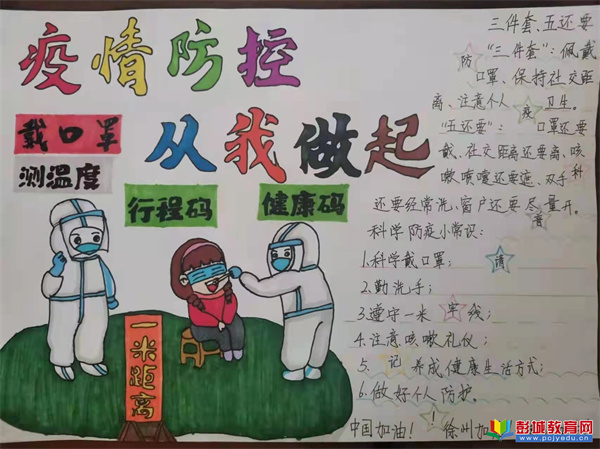 疫情防控
从我做起
戴口罩
测温度
行程码
健康码
一米距离
三件套、五还要
"三件套": 佩戴
口罩、保持社交距
离、注意个人卫生。
"五还要": 口罩还要
戴、社交距离还要离、咳
嗽喷嚏还要遮、双手
还要经常洗、窗户还要尽量开。
科学防疫小常识:
1.科学戴口罩;
2.勤洗手;
3.遵守一米线;
4.注意咳嗽礼仪;
5.养成健康生活方式;
6.做好个人防护。
中国加油! 徐州加
防
疫
科
普
请
牢
记
!
彭城教育网
www.pcjyedu.cn